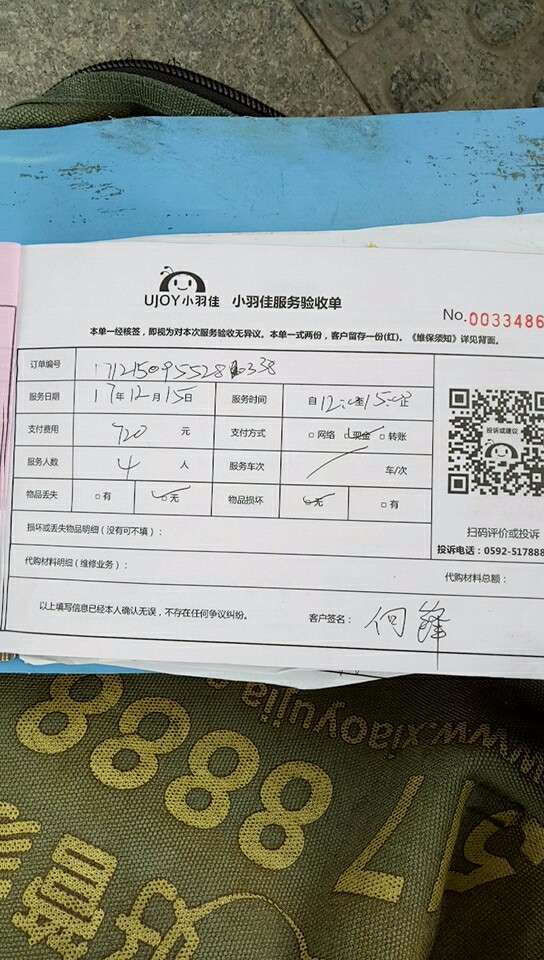 UJOY小羽佳 小羽佳服务验收单
No. 0033486
本单一经核签，即视为对本次服务验收无异议。本单一式两份，客户留存一份(红)。《维保须知》详见背面。
订单编号
服务日期 17年12月15日 服务时间 自12:00至15:00止
支付费用 720 元 支付方式 □网络 □现金 □转账
服务人数 4 人 服务车次 车/次
物品丢失 □有 □无 物品损坏 □无 □有
投诉或建议
扫码评价或投诉
损坏或丢失物品明细（没有可不填）：
投诉电话：0592-517888
代购材料明细（维修业务）：
代购材料总额：
以上填写信息已经本人确认无误，不存在任何争议纠纷。 客户签名： 何锋
www.xiaoyujia
5178888